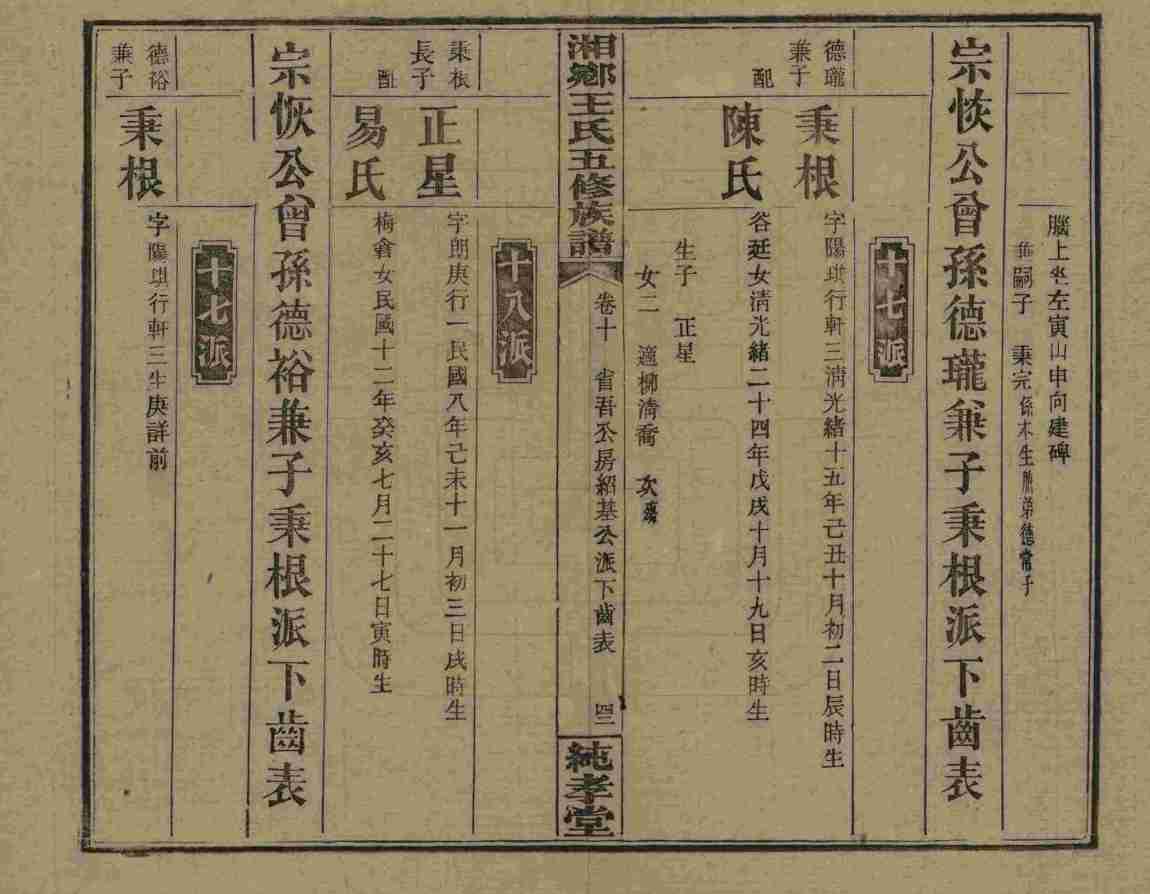 腦上坐左寅山申向建碑
兼嗣子 秉完係本生胞弟德常子
宗恢公曾孫德瓏兼子秉根派下齒表
十七派
德瓏兼子 秉根 字陽琪行軒三清光緒十五年己丑十月初二日辰時生
配 陳氏 谷廷女清光緒二十四年戊戌十月十九日亥時生
生子 正星
女二 適柳清喬 次
湘鄉王氏五修族譜 卷十 省吾公房紹基公派下齒表 四三 純孝堂
十八派
秉根長子 正星 字朗庚行一民國八年己未十一月初三日戌時生
配 易氏 梅倉女民國十二年癸亥七月二十七日寅時生
宗恢公曾孫德裕兼子秉根派下齒表
十七派
德裕兼子 秉根 字陽琪行軒三生庚詳前